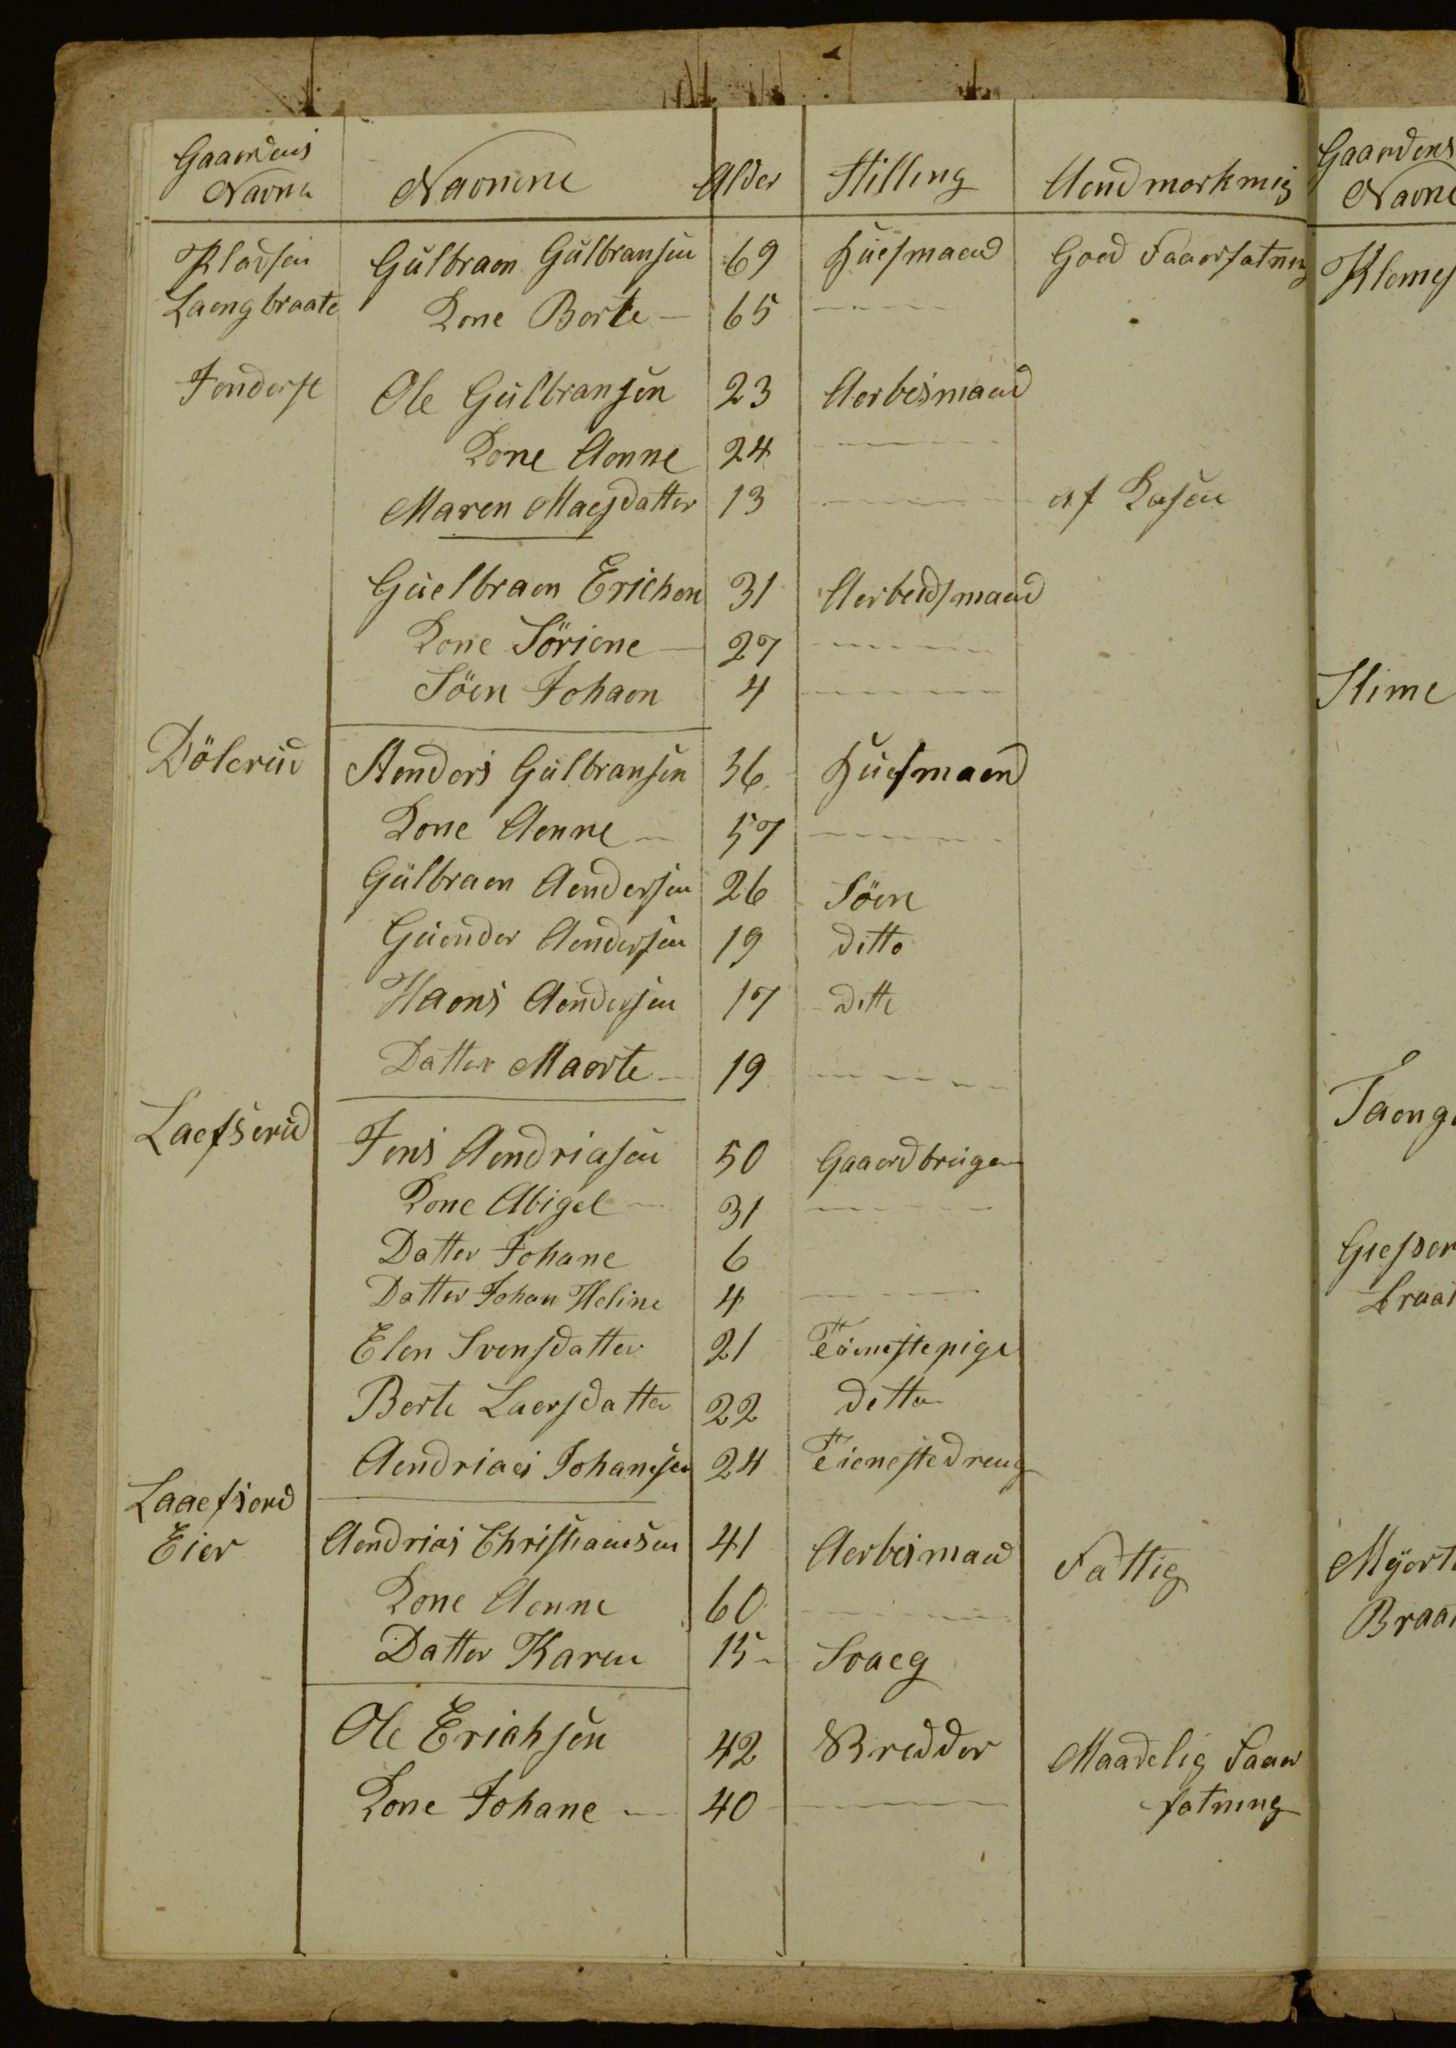 Gaardens Navne | Navnene | Alder | Stilling | Aendmerkning
Klavsen | Gulbraen Gulbransen | 69 | Huesmaend | Goed Faaerfatning
Laengbraate | Kone Berte — | 65 | ———
Jenderse | Ole Gulbransen | 23 | Aerbeismaend
Kone Aenne | 24 | ———
Maren Maesdatter | 13 | ——— | af Kasen
Guelbraen Erichen | 31 | Aerbeidsmaend
Kone Söriene — | 27 | ———
Söen Johaen | 4 | ———
Dölerud | Aenders Gulbransen | 56 | Huesmaend
Kone Aenne — | 57 | ———
Gulbraen Aendersen | 26 | Söen
Guender Aendersen | 19 | ditto
Haens Aendersen | 17 | ditto
Datter Maerte — | 19 | ———
Laefserud | Jens Aendriasen | 50 | Gaaerdbruger
Kone Abigel — | 31 | ———
Datter Johane | 6
Datter Johan Heline | 4 | ———
Elen Svensdatter | 21 | Tienestepige
Berte Laersdatter | 22 | ditto
Aendriaes Johansen | 24 | Tienestedreng
Laaefserd
Eier | Aendrias Christiaensen | 41 | Aerbeismaend | Fattig
Kone Aenne | 60 | ———
Datter Karen | 15 - | Svaeg
Ole Erichsen | 42 | Bredder | Maadelig Faaer
Kone Johane — | 40 | ——— | fatning
Gaardens
Navne
Klemes
Stime
Taeng
Giesser
braat
Myert
Braat